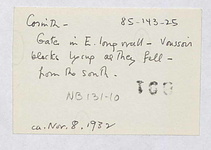 Corinth - 85-143-25
Gates in E. long wall - Voussoir
blocks lying as they fell -
from the south.
NB 131-10
ca. Nov. 8, 1932